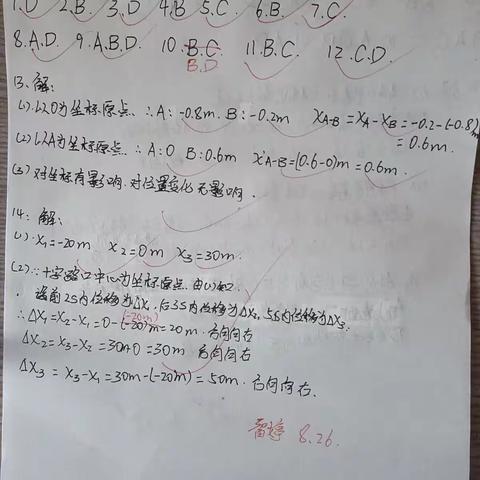 1.D 2.B. 3.D 4.B 5.C. 6.B. 7.C.
8.A.D. 9.A.B.D. 10.B.C. 11.B.C. 12.C.D.
B.D
13.解:
(1)以O为坐标原点.∴A:-0.8m.B:-0.2m X_{A-B}=X_A-X_B=-0.2-(-0.8)m
=0.6m.
(2)以A为坐标原点.∴A:0 B:0.6m X'_{A-B}=(0.6-0)m=0.6m.
(3)对坐标有影响.对位置变化无影响.
14.解:
(1)·X₁=-20m X₂=0m X₃=30m.
(2)∵十字路口中心为坐标原点.由(1)如2.
·设前2S内位移为ΔX₁,后3S内位移为ΔX₂,5S内位移为ΔX₃.
(-20m)
∴ΔX₁=X₂-X₁=0-(-20)m=20m.方向向右
ΔX₂=X₃-X₂=30-0=30m 方向向右
ΔX₃=X₃-X₁=30m-(-20m)=50m.方向向右.
8.26.